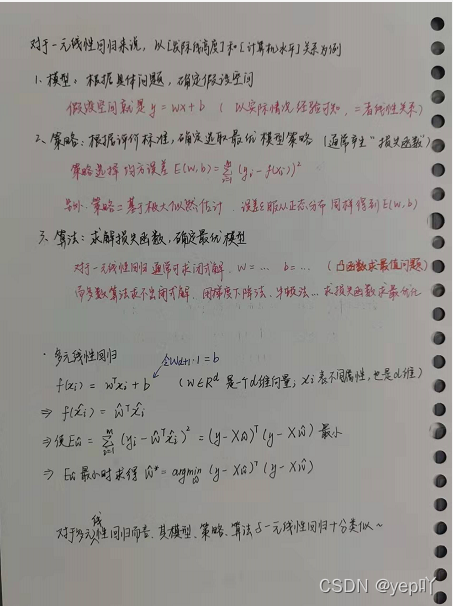 对于一元线性回归来说，以[发际线高度]和[计算机水平]关系为例
1. 模型：根据具体问题，确定假设空间
假设空间就是 y = wx + b （以实际情况经验可知，二者线性关系）
二、策略：根据评价标准，确定选取最优模型策略（通常产生“损失函数”）
策略选择 均方误差 E(w,b) = Σ_{i=1}^{m} (y_i - f(x_i))²
另外：策略 = 基于极大似然估计 误差ε服从正态分布 同样得到 E(w,b)
三、算法：求解损失函数，确定最优模型
对于一元线性回归 通常可求闭式解，w = … b = … （凸函数求最值问题）
而多数算法求不出闭式解，用梯度下降法、牛顿法…求损失函数求最优化
· 多元线性回归
令 w_{d+1}·1 = b
f(x_i) = w^T x_i + b （w∈R^d 是一个d维向量，x_i 表不同属性，也是d维）
⇒ f(x̂_i) = ŵ^T x̂_i
⇒ 使 Eŵ = Σ_{i=1}^{m} (y_i - ŵ^T x̂_i)² = (y - Xŵ)^T (y - Xŵ) 最小
⇒ Eŵ 最小时求得 ŵ* = argmin_ŵ (y - Xŵ)^T (y - Xŵ)
对于多元线性回归而言，其模型、策略、算法与一元线性回归十分类似~
CSDN @yep吖